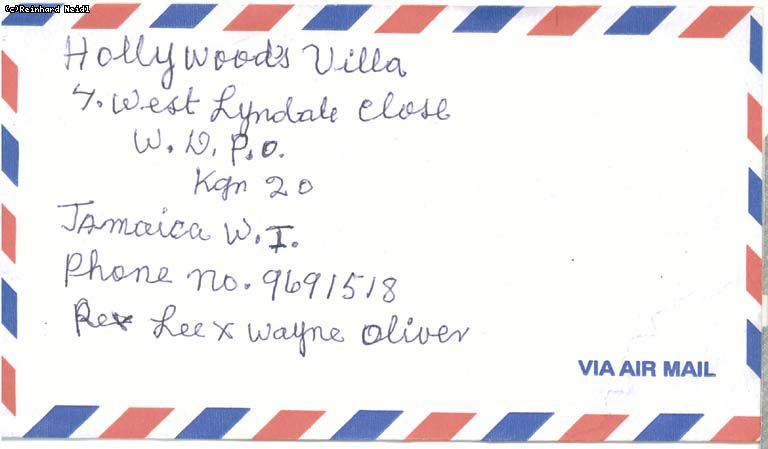 (c)Reinhard Neidl
Hollywood's Villa
4. West Lyndale Close
W. D. P.O.
Kgn 20
JAmaica W.I.
Phone no. 9691518
Rex Lee x Wayne Oliver
VIA AIR MAIL